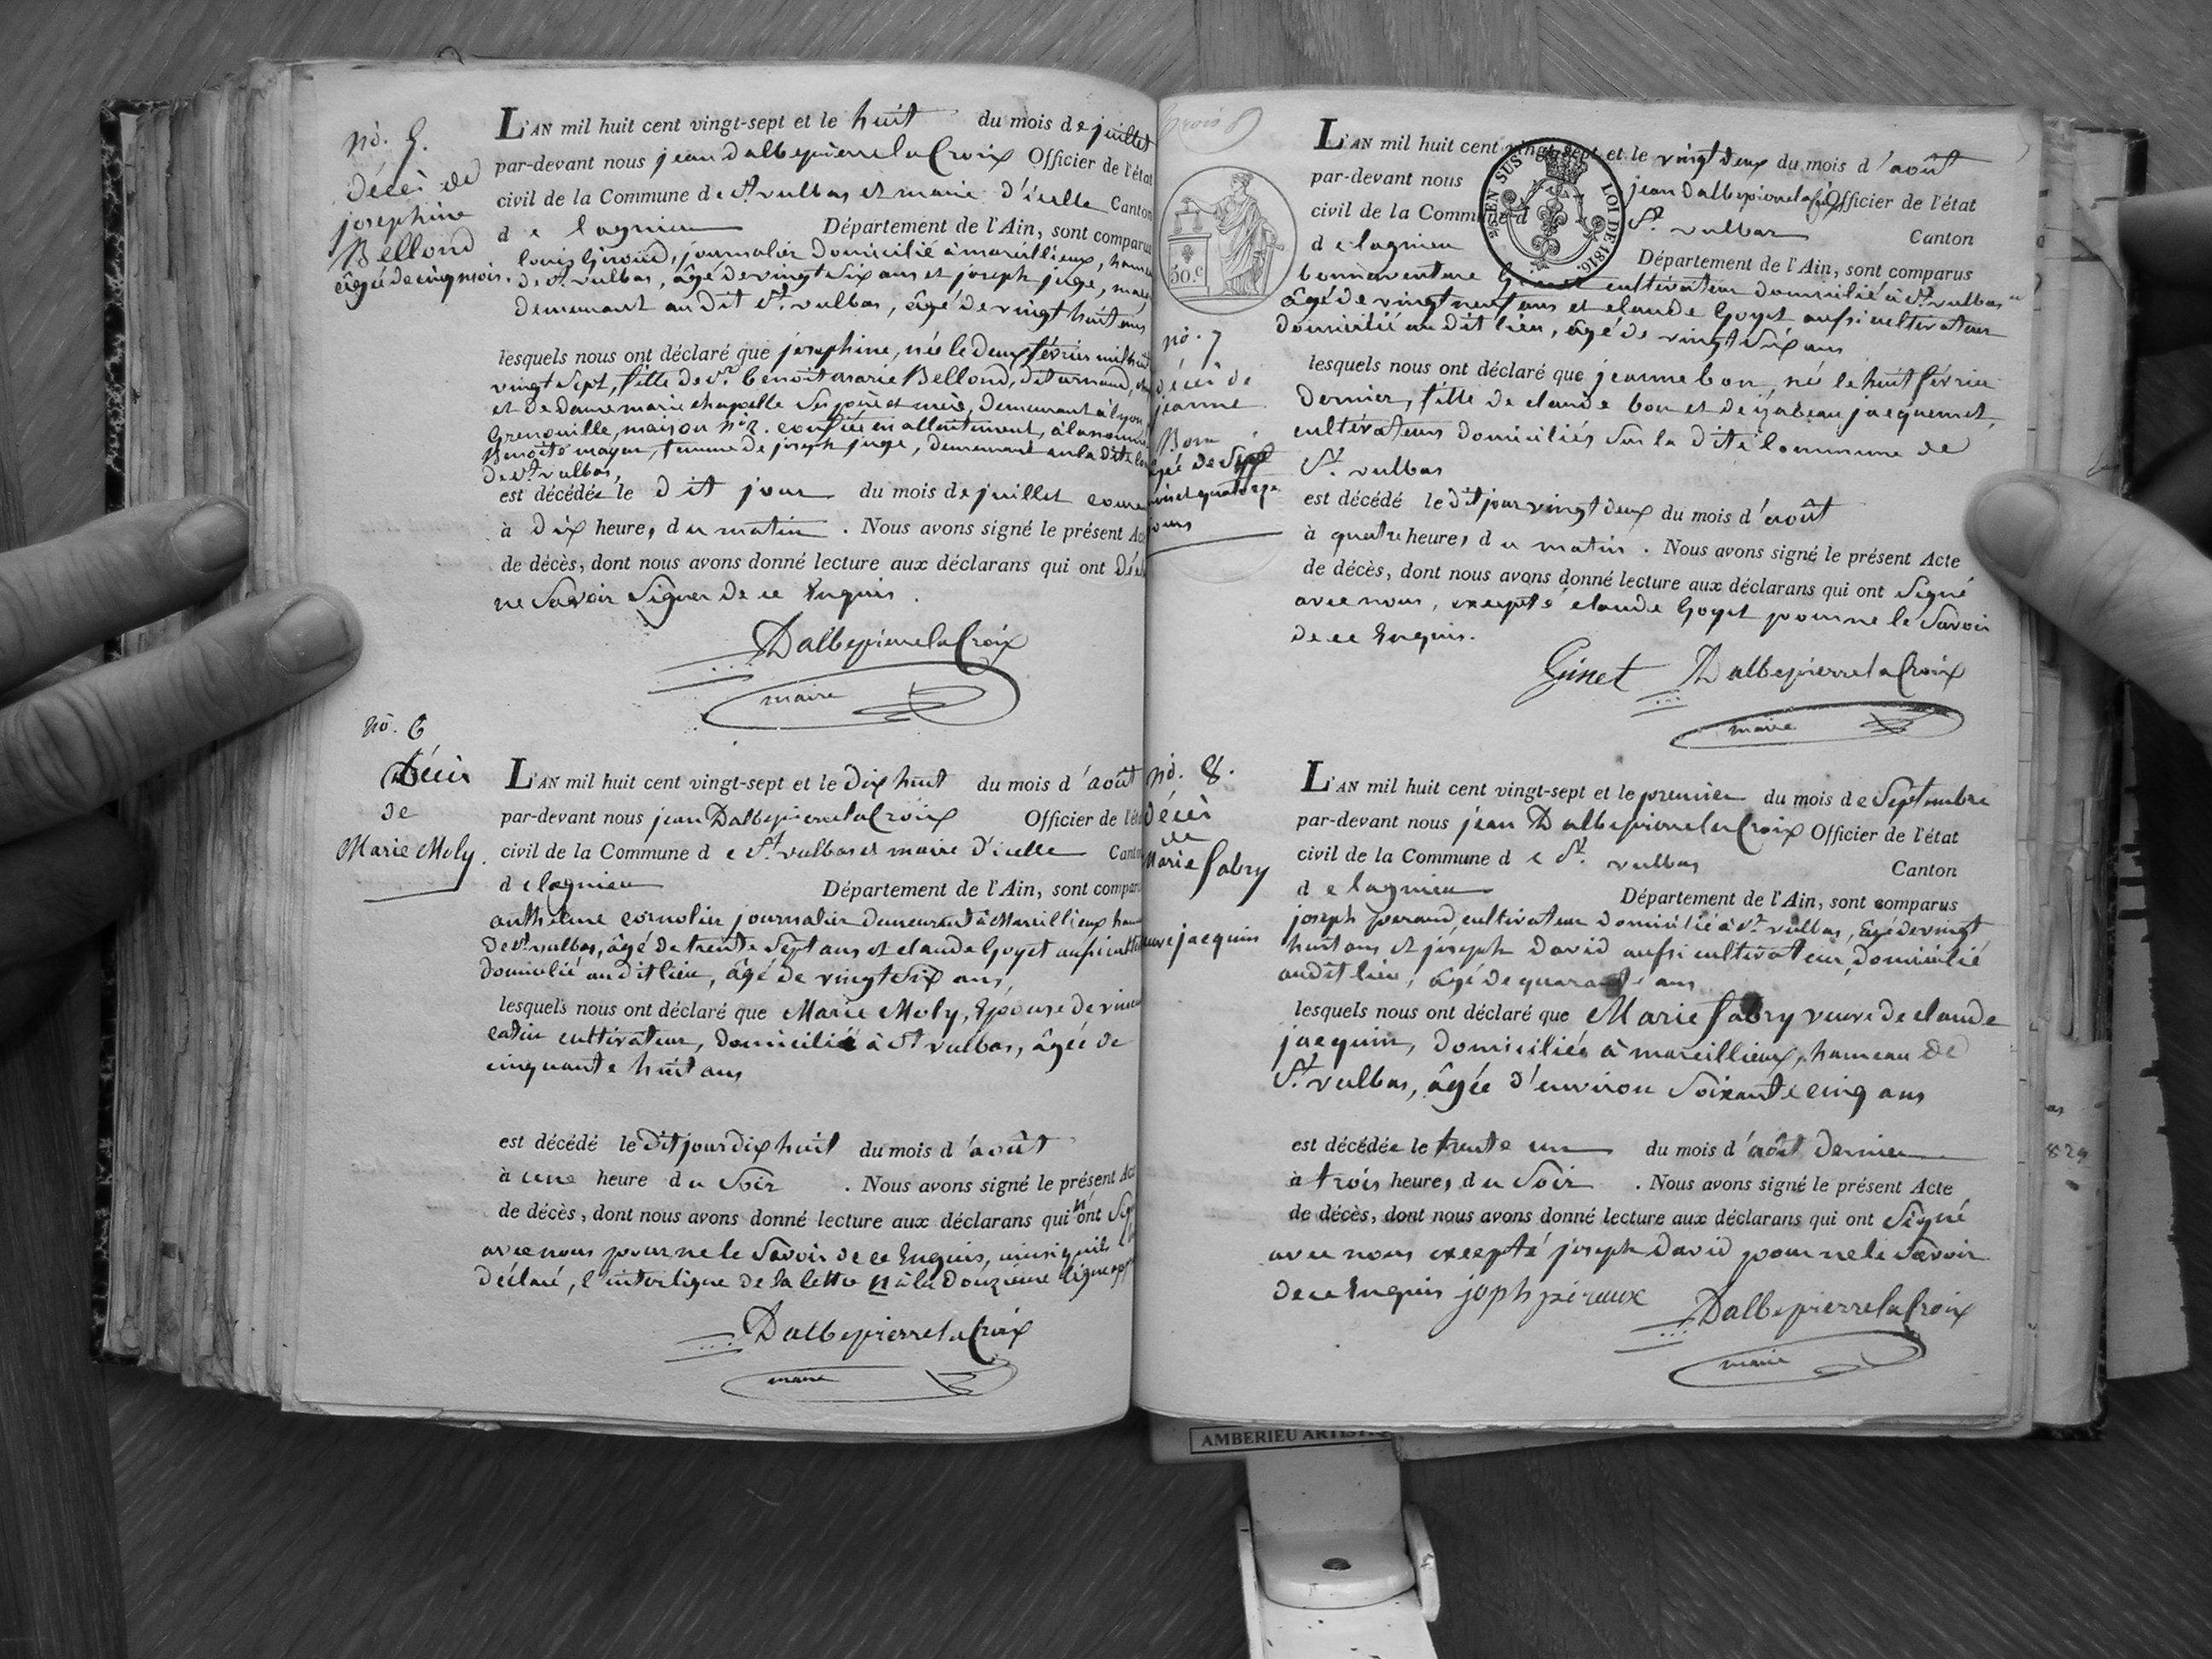 no. 5.
décès de
josephine
Bellond
âgée de cinq mois.
L'AN mil huit cent vingt-sept et le huit du mois de juillet
par-devant nous jean Dalbepierre la Croix Officier de l'état
civil de la Commune de St vulbas et maire d'icelle Canton
de lagnieu Département de l'Ain, sont comparus
louis Giroud, journalier domicilié à marcillieux, hameau
de St. vulbas, âgé de vingt six ans et joseph juge,
demeurant au dit St. vulbas, âgé de vingt huit ans
lesquels nous ont déclaré que josephine, née le deux février mil huit
vingt sept, fille de sr. benoit marie Bellond, dit
et de dame marie chapelle ses père et mère, demeurant à lyon
Grenouille, maison no 2. confiée en allaitement, à la nommée
Benoite mayer, femme de joseph juge, demeurant en la dite
de St vulbas,
est décédée le dit jour du mois de juillet
à dix heures du matin. Nous avons signé le présent
de décès, dont nous avons donné lecture aux déclarans qui ont
ne savoir signer de ce Enquis.
Dalbepierre la Croix
maire
no. 6
Décès
de
Marie Moly.
L'AN mil huit cent vingt-sept et le dix huit du mois d'août
par-devant nous jean Dalbepierre la Croix Officier de
civil de la Commune de St vulbas et maire d'icelle
de lagnieu Département de l'Ain, sont
anthelme cornolier journalier demeurant à Marcillieux
de St vulbas, âgé de trente sept ans et claude Goyet aussi
domicilié au dit lieu, âgé de vingt six ans,
lesquels nous ont déclaré que Marie Moly, Epouse de
catin cultivateur, domiciliée à St vulbas, âgée de
cinquante huit ans
est décédé le dit jour dix huit du mois d'août
à une heure du soir. Nous avons signé le présent
de décès, dont nous avons donné lecture aux déclarans qui n'ont
avec nous pour ne le savoir de ce Enquis, ainsi qu'ils
déclaré, l'interligne de la lettre n à la douzième ligne
Dalbepierre la Croix
maire
30.c
EN SUS
LOI DE 1816.
no. 7
décès de
jeanne
Bon
âgée de sept
mois et quatorze
jours
L'AN mil huit cent vingt-sept et le vingt deux du mois d'août
par-devant nous jean Dalbepierre la Croix Officier de l'état
civil de la Commune de St. vulbas Canton
de lagnieu Département de l'Ain, sont comparus
bonnaventure Ginet cultivateur domicilié à St vulbas
âgé de vingt neuf ans et claude Goyet aussi cultivateur
domicilié au dit lieu, âgé de vingt six ans
lesquels nous ont déclaré que jeanne bon, née le huit février
dernier, fille de claude bon et de isabeau jacquemet,
cultivateurs domiciliés sur la dite Commune de
St. vulbas
est décédé le dit jour vingt deux du mois d'août
à quatre heures du matin. Nous avons signé le présent Acte
de décès, dont nous avons donné lecture aux déclarans qui ont signé
avec nous, excepté claude Goyet pour ne le savoir
de ce Enquis.
Ginet Dalbepierre la Croix
maire
no. 8.
décès
de
Marie fabry
veuve jacquin
L'AN mil huit cent vingt-sept et le premier du mois de Septembre
par-devant nous jean Dalbepierre la Croix Officier de l'état
civil de la Commune de St. vulbas Canton
de lagnieu Département de l'Ain, sont comparus
joseph peraud, cultivateur domicilié à St. vulbas, âgé de vingt
huit ans et joseph david aussi cultivateur, domicilié
audit lieu, âgé de quarante ans
lesquels nous ont déclaré que Marie fabry veuve de claude
jacquin, domiciliée à marcillieux, hameau de
St. vulbas, âgée d'environ soixante cinq ans
est décédée le trente un du mois d'août dernier
à trois heures du soir. Nous avons signé le présent Acte
de décès, dont nous avons donné lecture aux déclarans qui ont signé
avec nous excepté joseph david pour ne le savoir
de ce Enquis joph péraux Dalbepierre la Croix
maire
AMBERIEU